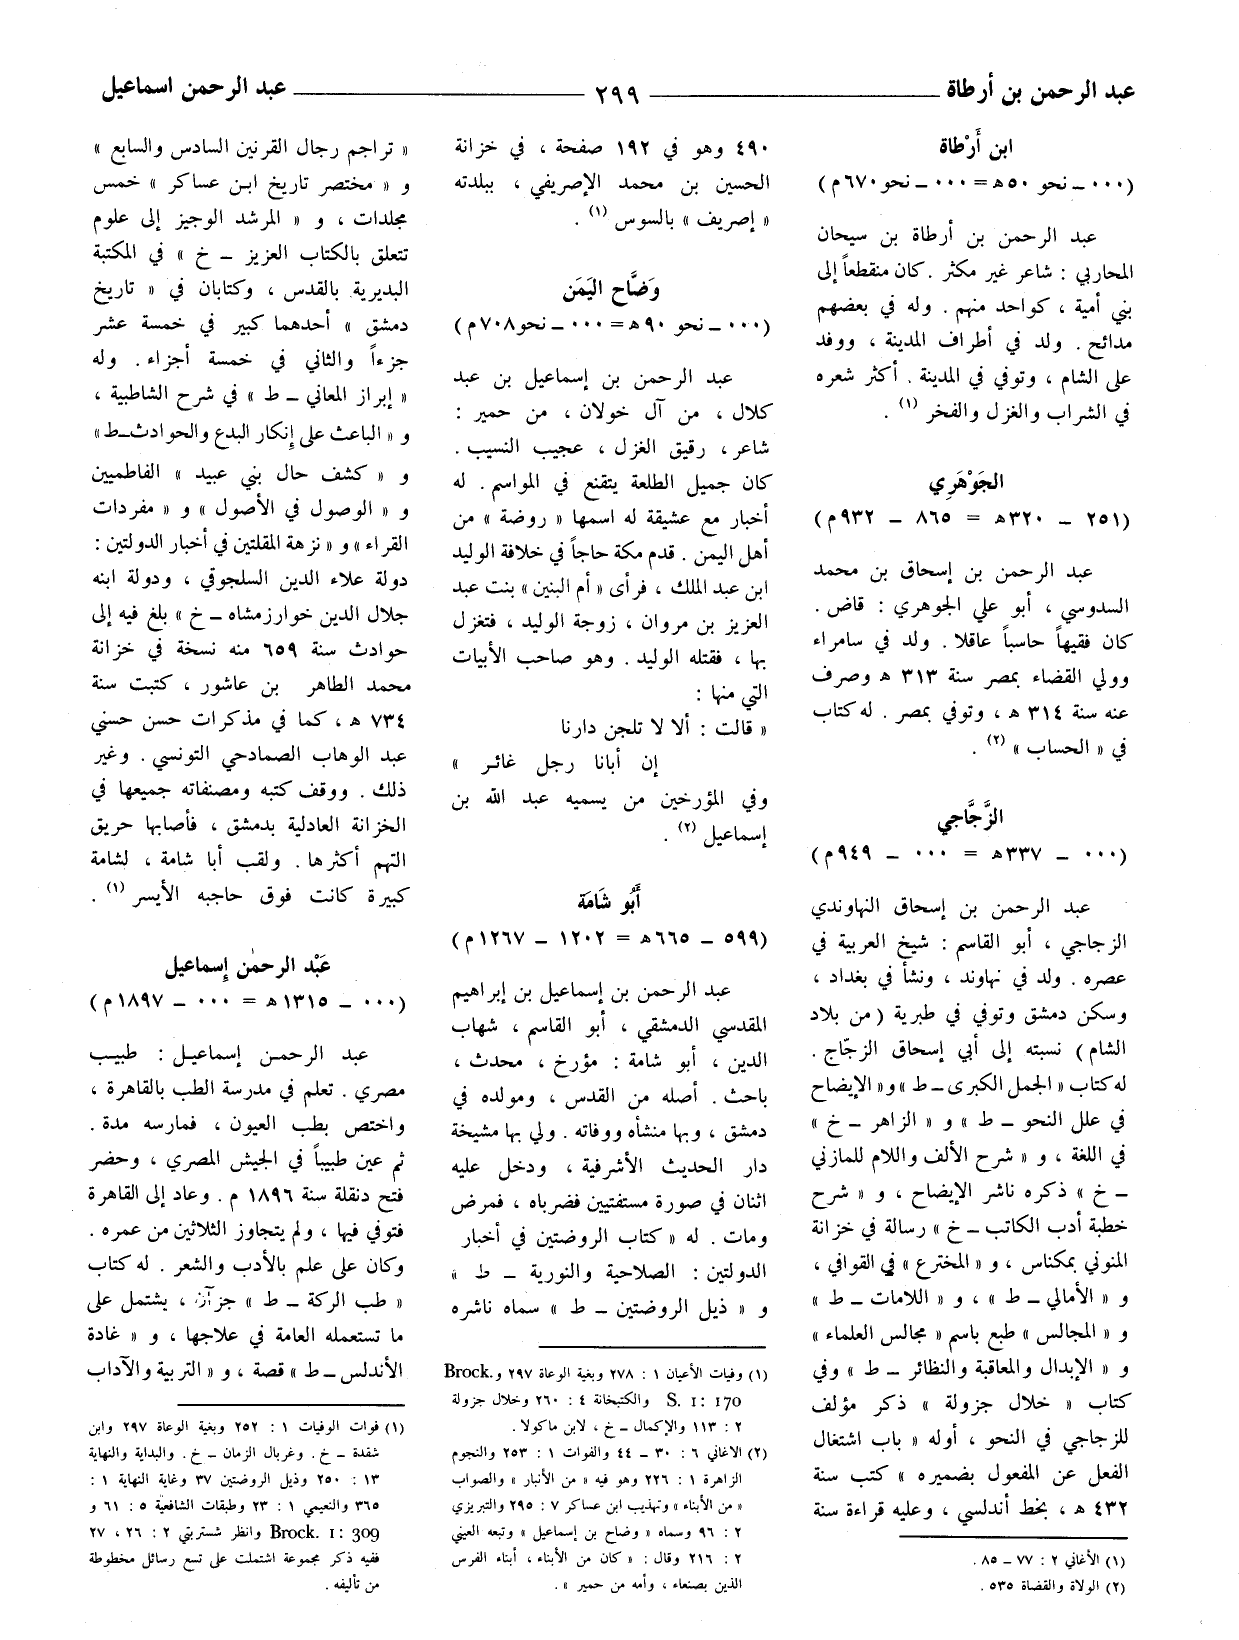 عبد الرحمن بن أرطاة ٢٩٩ عبد الرحمن اسماعيل
ابن أَرْطاة
(٠٠٠ ـ نحو ٥٠ ه = ٠٠٠ ـ نحو ٦٧٠ م)
عبد الرحمن بن أرطاة بن سيحان
المحاربي : شاعر غير مكثر . كان منقطعاً إلى
بني أمية ، كواحد منهم . وله في بعضهم
مدائح . ولد في أطراف المدينة ، ووفد
على الشام ، وتوفي في المدينة . أكثر شعره
في الشراب والغزل والفخر (١) .
الجَوْهَرِي
(٢٥١ ـ ٣٢٠ ه = ٨٦٥ ـ ٩٣٢ م)
عبد الرحمن بن إسحاق بن محمد
السدوسي ، أبو علي الجوهري : قاض .
كان فقيهاً حاسباً عاقلا . ولد في سامراء
وولي القضاء بمصر سنة ٣١٣ ه وصرف
عنه سنة ٣١٤ ه ، وتوفي بمصر . له كتاب
في « الحساب » (٢) .
الزَّجَّاجي
(٠٠٠ ـ ٣٣٧ ه = ٠٠٠ ـ ٩٤٩ م)
عبد الرحمن بن إسحاق النهاوندي
الزجاجي ، أبو القاسم : شيخ العربية في
عصره . ولد في نهاوند ، ونشأ في بغداد ،
وسكن دمشق وتوفي في طبرية (من بلاد
الشام) نسبته إلى أبي إسحاق الزجّاج .
له كتاب « الجمل الكبرى ـ ط » و« الإيضاح
في علل النحو ـ ط » و « الزاهر ـ خ »
في اللغة ، و « شرح الألف واللام للمازني
ـ خ » ذكره ناشر الإيضاح ، و « شرح
خطبة أدب الكاتب ـ خ » رسالة في خزانة
المنوني بمكناس ، و « المخترع » في القوافي ،
و « الأمالي ـ ط » ، و « اللامات ـ ط »
و « المجالس » طبع باسم « مجالس العلماء »
و « الإبدال والمعاقبة والنظائر ـ ط » وفي
كتاب « خلال جزولة » ذكر مؤلف
للزجاجي في النحو ، أوله « باب اشتغال
الفعل عن المفعول بضميره » كتب سنة
٤٣٢ ه ، بخط أندلسي ، وعليه قراءة سنة
(١) الأغاني ٢ : ٧٧ ـ ٨٥ .
(٢) الولاة والقضاة ٥٣٥ .
٤٩٠ وهو في ١٩٢ صفحة ، في خزانة
الحسين بن محمد الإصريفي ، ببلدته
« إصريف » بالسوس (١) .
وَضَّاح اليَمَن
(٠٠٠ ـ نحو ٩٠ ه = ٠٠٠ ـ نحو ٧٠٨ م)
عبد الرحمن بن إسماعيل بن عبد
كلال ، من آل خولان ، من حمير :
شاعر ، رقيق الغزل ، عجيب النسيب .
كان جميل الطلعة يتقنع في المواسم . له
أخبار مع عشيقة له اسمها « روضة » من
أهل اليمن . قدم مكة حاجاً في خلافة الوليد
ابن عبد الملك ، فرأى « أم البنين » بنت عبد
العزيز بن مروان ، زوجة الوليد ، فتغزل
بها ، فقتله الوليد . وهو صاحب الأبيات
التي منها :
« قالت : ألا لا تلجن دارنا
إن أبانا رجل غائر »
وفي المؤرخين من يسميه عبد الله بن
إسماعيل (٢) .
أَبُو شَامَة
(٥٩٩ ـ ٦٦٥ ه = ١٢٠٢ ـ ١٢٦٧ م)
عبد الرحمن بن إسماعيل بن إبراهيم
المقدسي الدمشقي ، أبو القاسم ، شهاب
الدين ، أبو شامة : مؤرخ ، محدث ،
باحث . أصله من القدس ، ومولده في
دمشق ، وبها منشأه ووفاته . ولي بها مشيخة
دار الحديث الأشرفية ، ودخل عليه
اثنان في صورة مستفتيين فضرباه ، فمرض
ومات . له « كتاب الروضتين في أخبار
الدولتين : الصلاحية والنورية ـ ط »
و « ذيل الروضتين ـ ط » سماه ناشره
(١) وفيات الأعيان ١ : ٢٧٨ وبغية الوعاة ٢٩٧ و Brock.
S. I: 170 والكتبخانة ٤ : ٢٦٠ وخلال جزولة
٢ : ١١٣ والإكمال ـ خ ، لابن ماكولا .
(٢) الاغاني ٦ : ٣٠ ـ ٤٤ والفوات ١ : ٢٥٣ والنجوم
الزاهرة ١ : ٢٢٦ وهو فيه « من الأنبار » والصواب
« من الأبناء » وتهذيب ابن عساكر ٧ : ٢٩٥ والتبريزي
٢ : ٩٦ وسماه « وضاح بن إسماعيل » وتبعه العيني
٢ : ٢١٦ وقال : « كان من الأبناء ، أبناء الفرس
الذين بصنعاء ، وأمه من حمير » .
« تراجم رجال القرنين السادس والسابع »
و « مختصر تاريخ ابن عساكر » خمس
مجلدات ، و « المرشد الوجيز إلى علوم
تتعلق بالكتاب العزيز ـ خ » في المكتبة
البديرية بالقدس ، وكتابان في « تاريخ
دمشق » أحدهما كبير في خمسة عشر
جزءاً والثاني في خمسة أجزاء . وله
« إبراز المعاني ـ ط » في شرح الشاطبية ،
و « الباعث على إنكار البدع والحوادث ـ ط »
و « كشف حال بني عبيد » الفاطميين
و « الوصول في الأصول » و « مفردات
القراء » و « نزهة المقلتين في أخبار الدولتين :
دولة علاء الدين السلجوقي ، ودولة ابنه
جلال الدين خوارزمشاه ـ خ » بلغ فيه إلى
حوادث سنة ٦٥٩ منه نسخة في خزانة
محمد الطاهر بن عاشور ، كتبت سنة
٧٣٤ ه ، كما في مذكرات حسن حسني
عبد الوهاب الصمادحي التونسي . وغير
ذلك . ووقف كتبه ومصنفاته جميعها في
الخزانة العادلية بدمشق ، فأصابها حريق
التهم أكثرها . ولقب أبا شامة ، لشامة
كبيرة كانت فوق حاجبه الأيسر (١) .
عَبْد الرحمٰن إسماعيل
(٠٠٠ ـ ١٣١٥ ه = ٠٠٠ ـ ١٨٩٧ م)
عبد الرحمن إسماعيل : طبيب
مصري . تعلم في مدرسة الطب بالقاهرة ،
واختص بطب العيون ، فمارسه مدة .
ثم عين طبيباً في الجيش المصري ، وحضر
فتح دنقلة سنة ١٨٩٦ م . وعاد إلى القاهرة
فتوفي فيها ، ولم يتجاوز الثلاثين من عمره .
وكان على علم بالأدب والشعر . له كتاب
« طب الركة ـ ط » جزآن ، يشتمل على
ما تستعمله العامة في علاجها ، و « غادة
الأندلس ـ ط » قصة ، و « التربية والآداب
(١) فوات الوفيات ١ : ٢٥٢ وبغية الوعاة ٢٩٧ وابن
شقدة ـ خ . وغربال الزمان ـ خ . والبداية والنهاية
١٣ : ٢٥٠ وذيل الروضتين ٣٧ وغاية النهاية ١ :
٣٦٥ والنعيمي ١ : ٢٣ وطبقات الشافعية ٥ : ٦١ و
Brock. I: 309 وانظر شستربتي ٢ : ٢٦ ، ٢٧
ففيه ذكر مجموعة اشتملت على تسع رسائل مخطوطة
من تأليفه .